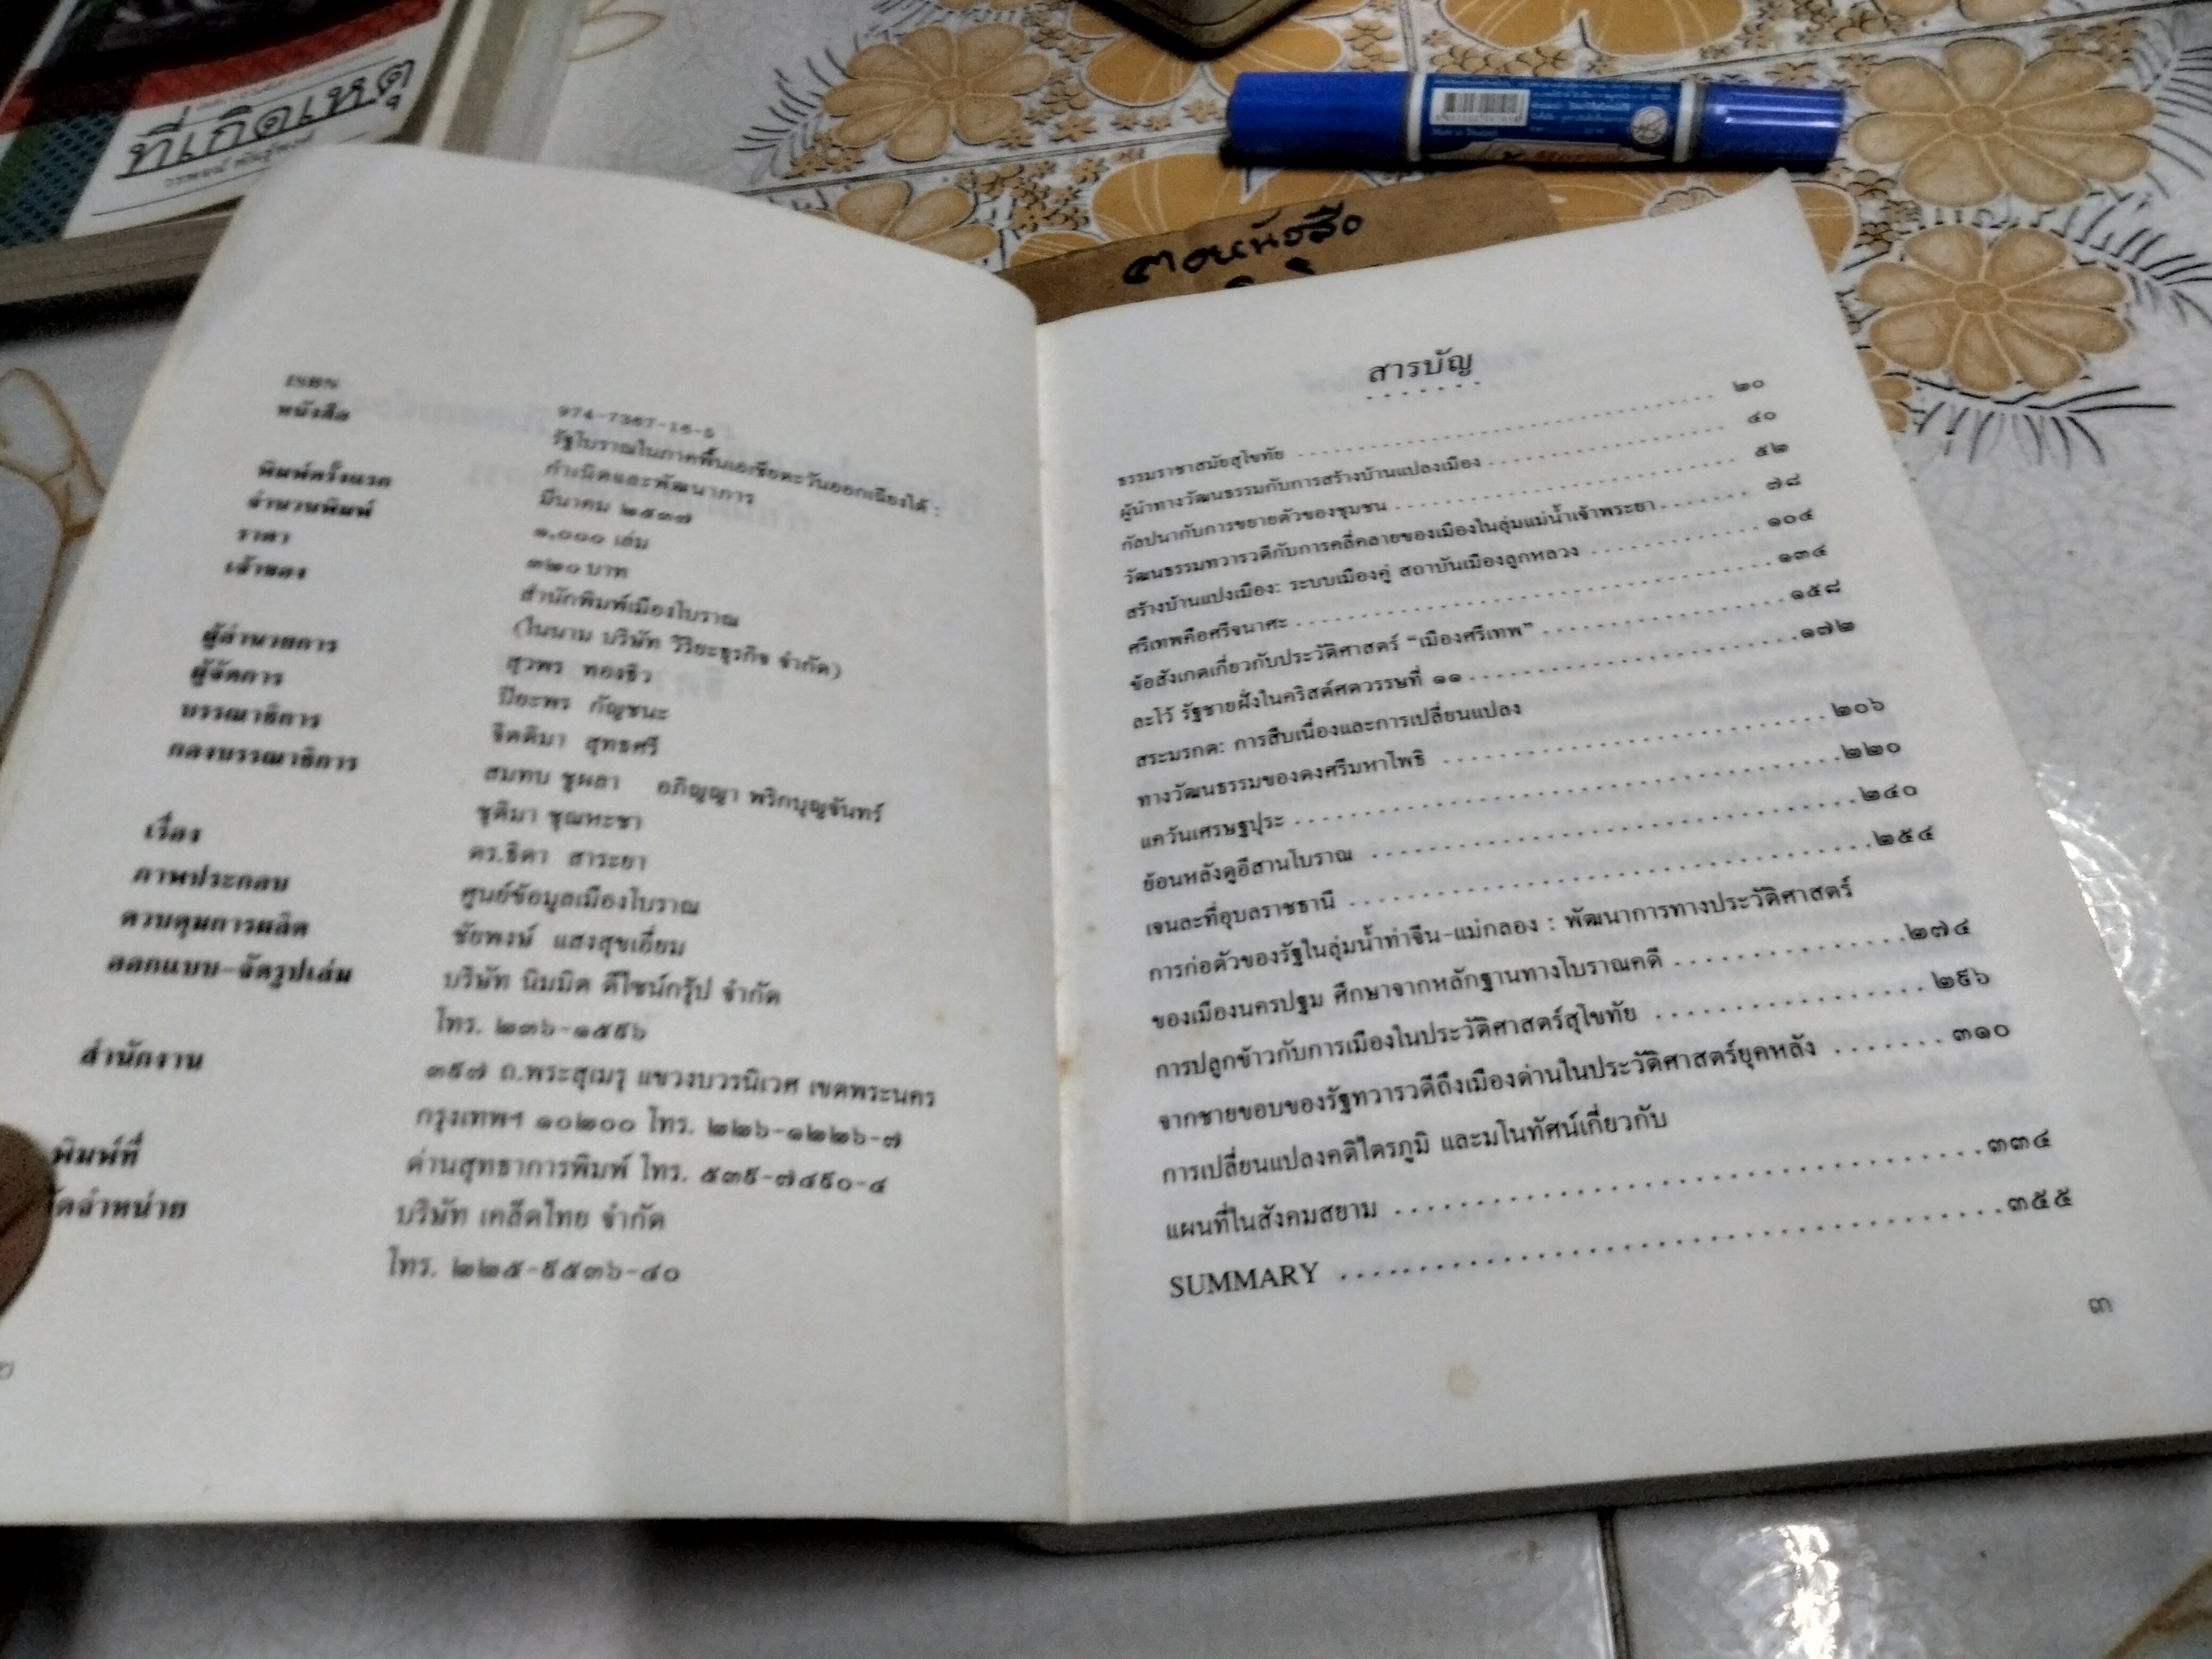 ที่เกิดเหตุ
วรพจน์ พันธุ์พงศ์
ตอหนังสือ
ISBN 974-7367-16-5
หนังสือ รัฐโบราณในภาคพื้นเอเชียตะวันออกเฉียงใต้ :
กำเนิดและพัฒนาการ
พิมพ์ครั้งแรก มีนาคม ๒๕๓๗
จำนวนพิมพ์ ๑,๐๐๐ เล่ม
ราคา ๓๒๐ บาท
เจ้าของ สำนักพิมพ์เมืองโบราณ
(ในนาม บริษัท วิริยะธุรกิจ จำกัด)
ผู้อำนวยการ สุวพร ทองธิว
ผู้จัดการ ปิยะพร กัญชนะ
บรรณาธิการ จิตติมา สุทธศรี
กองบรรณาธิการ สมทบ ชูผลา อภิญญา พริกบุญจันทร์
ชุติมา ชุณหะชา
เรื่อง ดร.ธิดา สาระยา
ภาพประกอบ ศูนย์ข้อมูลเมืองโบราณ
ควบคุมการผลิต ชัยพงษ์ แสงสุขเอี่ยม
ออกแบบ-จัดรูปเล่ม บริษัท นิมมิต ดีไซน์กรุ๊ป จำกัด
โทร. ๒๓๖-๑๕๙๖
สำนักงาน ๓๙๗ ถ.พระสุเมรุ แขวงบวรนิเวศ เขตพระนคร
กรุงเทพฯ ๑๐๒๐๐ โทร. ๒๒๖-๑๒๒๖-๗
พิมพ์ที่ ด่านสุทธาการพิมพ์ โทร. ๕๓๙-๗๔๙๐-๔
จัดจำหน่าย บริษัท เคล็ดไทย จำกัด
โทร. ๒๒๕-๙๕๓๖-๔๐
๒
สารบัญ
ธรรมราชาสมัยสุโขทัย ๒๐
ผู้นำทางวัฒนธรรมกับการสร้างบ้านแปลงเมือง ๔๐
กัลปนากับการขยายตัวของชุมชน ๕๒
วัฒนธรรมทวารวดีกับการคลี่คลายของเมืองในลุ่มแม่น้ำเจ้าพระยา ๗๘
สร้างบ้านแปงเมือง: ระบบเมืองคู่ สถาบันเมืองลูกหลวง ๑๐๔
ศรีเทพคือศรีจนาศะ ๑๓๔
ข้อสังเกตเกี่ยวกับประวัติศาสตร์ “เมืองศรีเทพ” ๑๕๘
ละโว้ รัฐชายฝั่งในคริสต์ศตวรรษที่ ๑๑ ๑๗๒
สระมรกต: การสืบเนื่องและการเปลี่ยนแปลง
ทางวัฒนธรรมของดงศรีมหาโพธิ ๒๐๖
แคว้นเศรษฐปุระ ๒๒๐
ย้อนหลังดูอีสานโบราณ ๒๔๐
เจนละที่อุบลราชธานี ๒๕๔
การก่อตัวของรัฐในลุ่มน้ำท่าจีน-แม่กลอง : พัฒนาการทางประวัติศาสตร์
ของเมืองนครปฐม ศึกษาจากหลักฐานทางโบราณคดี ๒๗๔
การปลูกข้าวกับการเมืองในประวัติศาสตร์สุโขทัย ๒๙๖
จากชายขอบของรัฐทวารวดีถึงเมืองด่านในประวัติศาสตร์ยุคหลัง ๓๑๐
การเปลี่ยนแปลงคติไตรภูมิ และมโนทัศน์เกี่ยวกับ
แผนที่ในสังคมสยาม ๓๓๔
SUMMARY ๓๕๕
๓